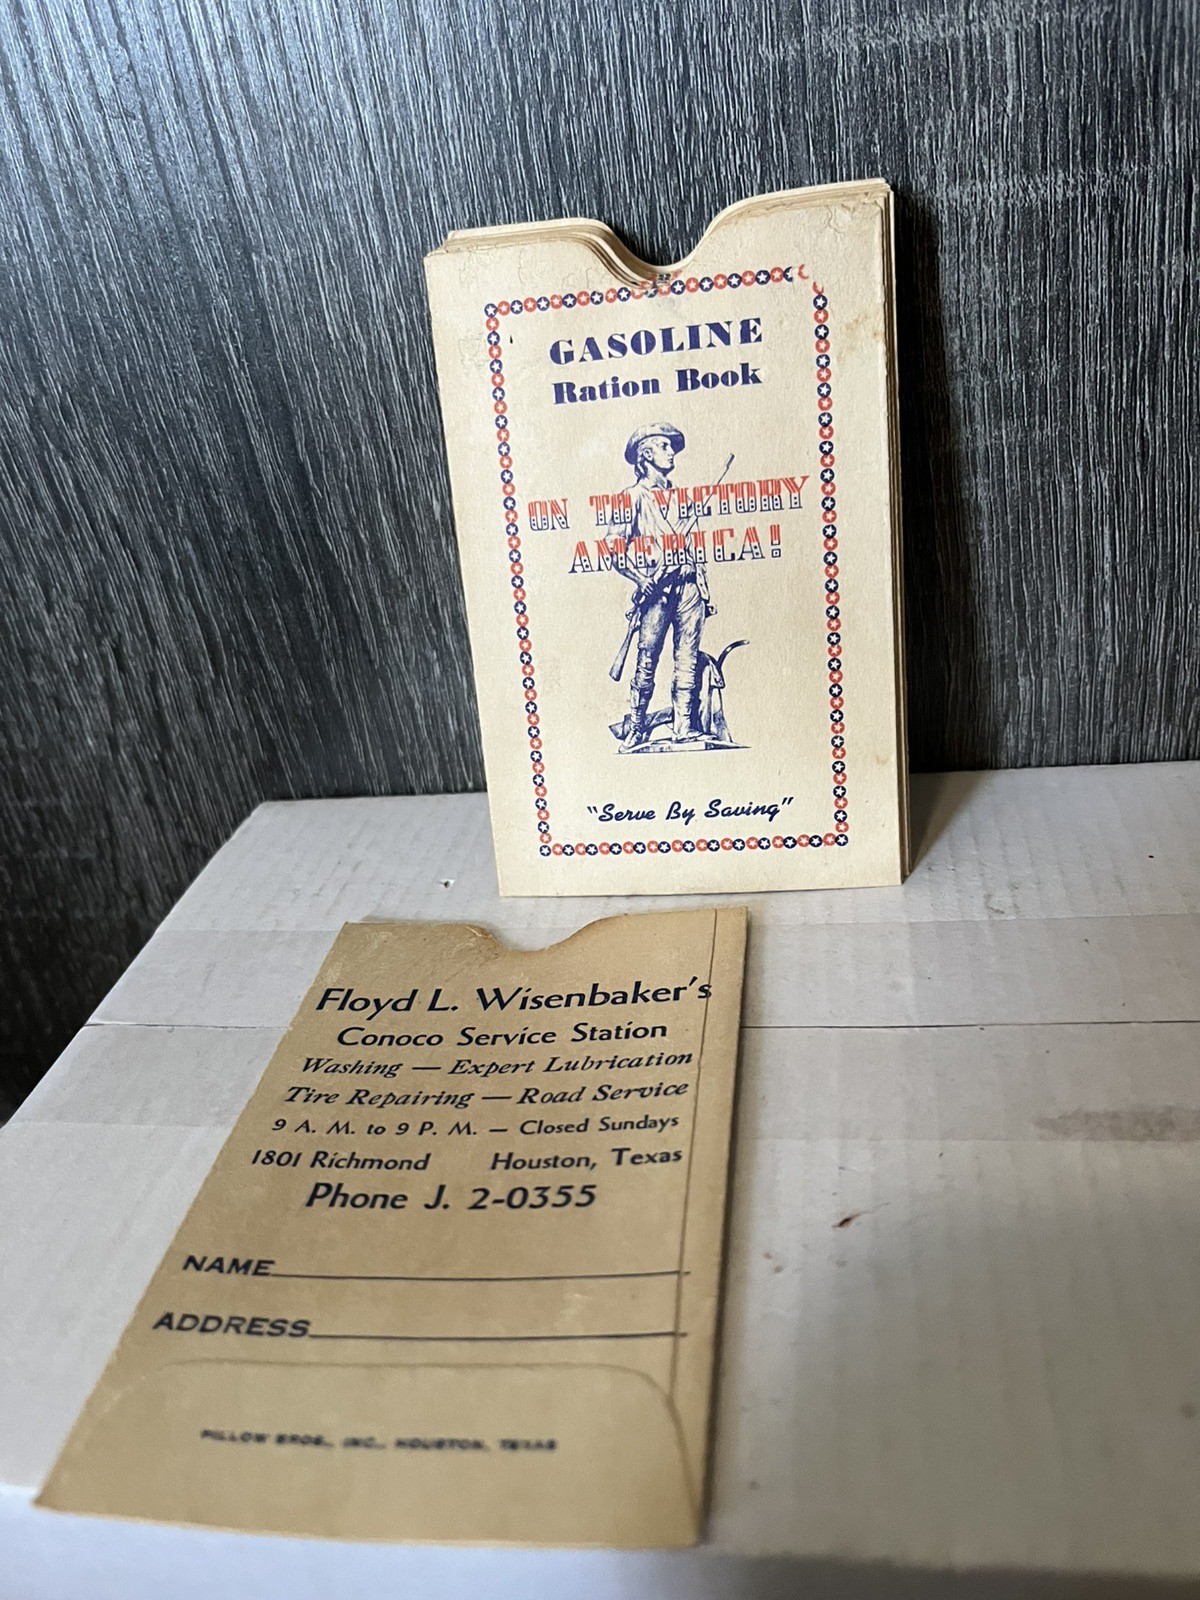 GASOLINE
Ration Book
ON TO VICTORY
AMERICA!
"Serve By Saving"
Floyd L. Wisenbaker's
Conoco Service Station
Washing — Expert Lubrication
Tire Repairing — Road Service
9 A. M. to 9 P. M. — Closed Sundays
1801 Richmond Houston, Texas
Phone J. 2-0355
NAME
ADDRESS
PILLOW BROS., INC., HOUSTON, TEXAS